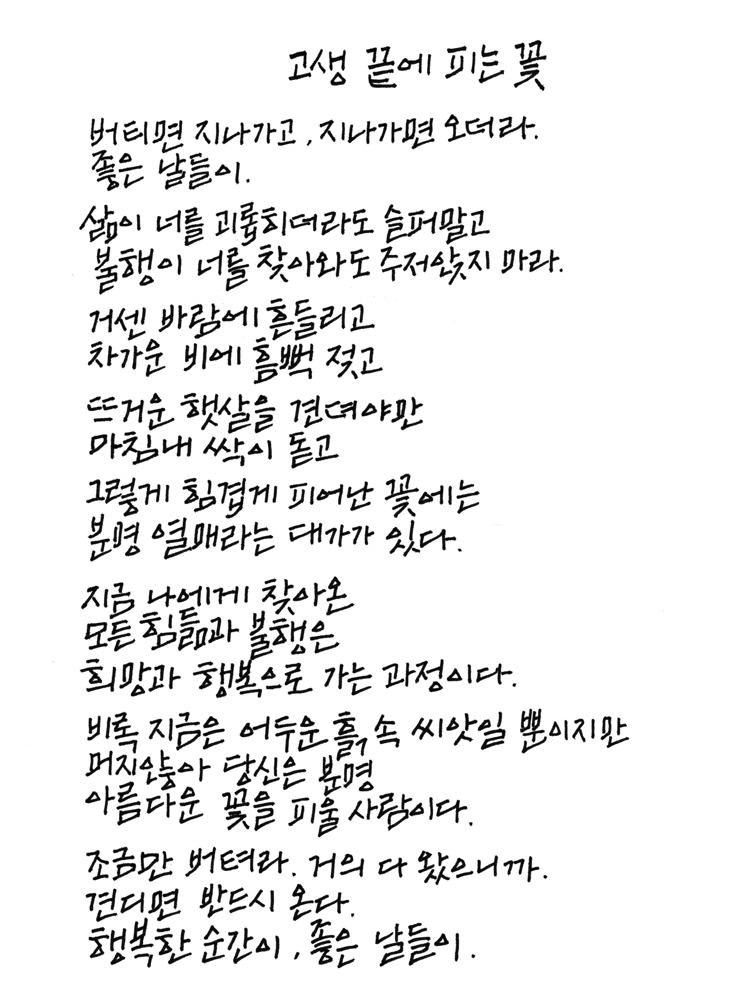 고생 끝에 피는 꽃
버티면 지나가고, 지나가면 오더라.
좋은 날들이.
삶이 너를 괴롭히더라도 슬퍼말고
불행이 너를 찾아와도 주저앉지 마라.
거센 바람에 흔들리고
차가운 비에 흠뻑 젖고
뜨거운 햇살을 견뎌야만
마침내 싹이 돋고
그렇게 힘겹게 피어난 꽃에는
분명 열매라는 대가가 있다.
지금 나에게 찾아온
모든 힘듦과 불행은
희망과 행복으로 가는 과정이다.
비록 지금은 어두운 흙 속 씨앗일 뿐이지만
머지않아 당신은 분명
아름다운 꽃을 피울 사람이다.
조금만 버텨라. 거의 다 왔으니까.
견디면 반드시 온다.
행복한 순간이, 좋은 날들이.